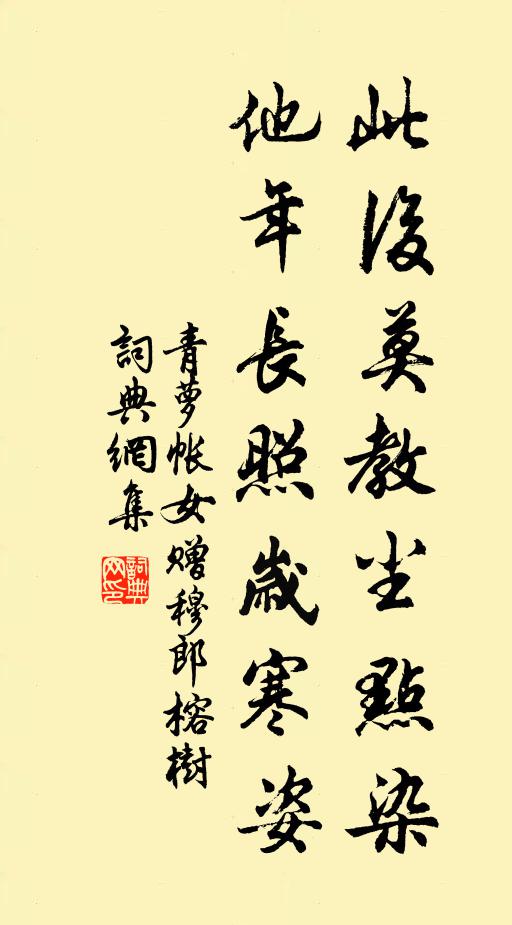 此後莫教尘點染
他年長照歲寒姿
青萝帐女赠穆郎榕樹
詞典網集
詞典网印